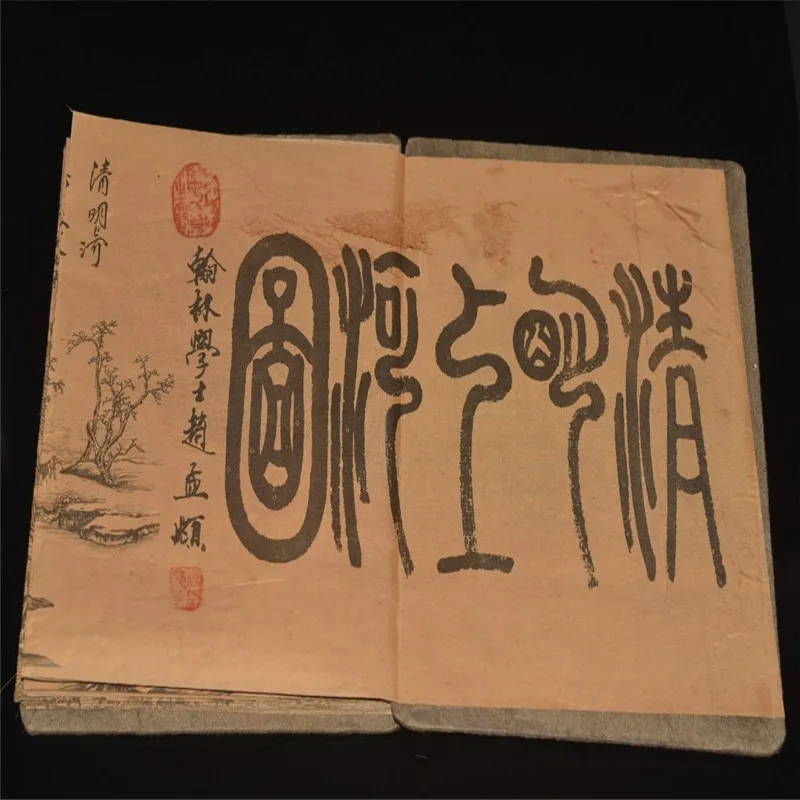 清明上河圖
翰林學士趙孟頫
清明上河